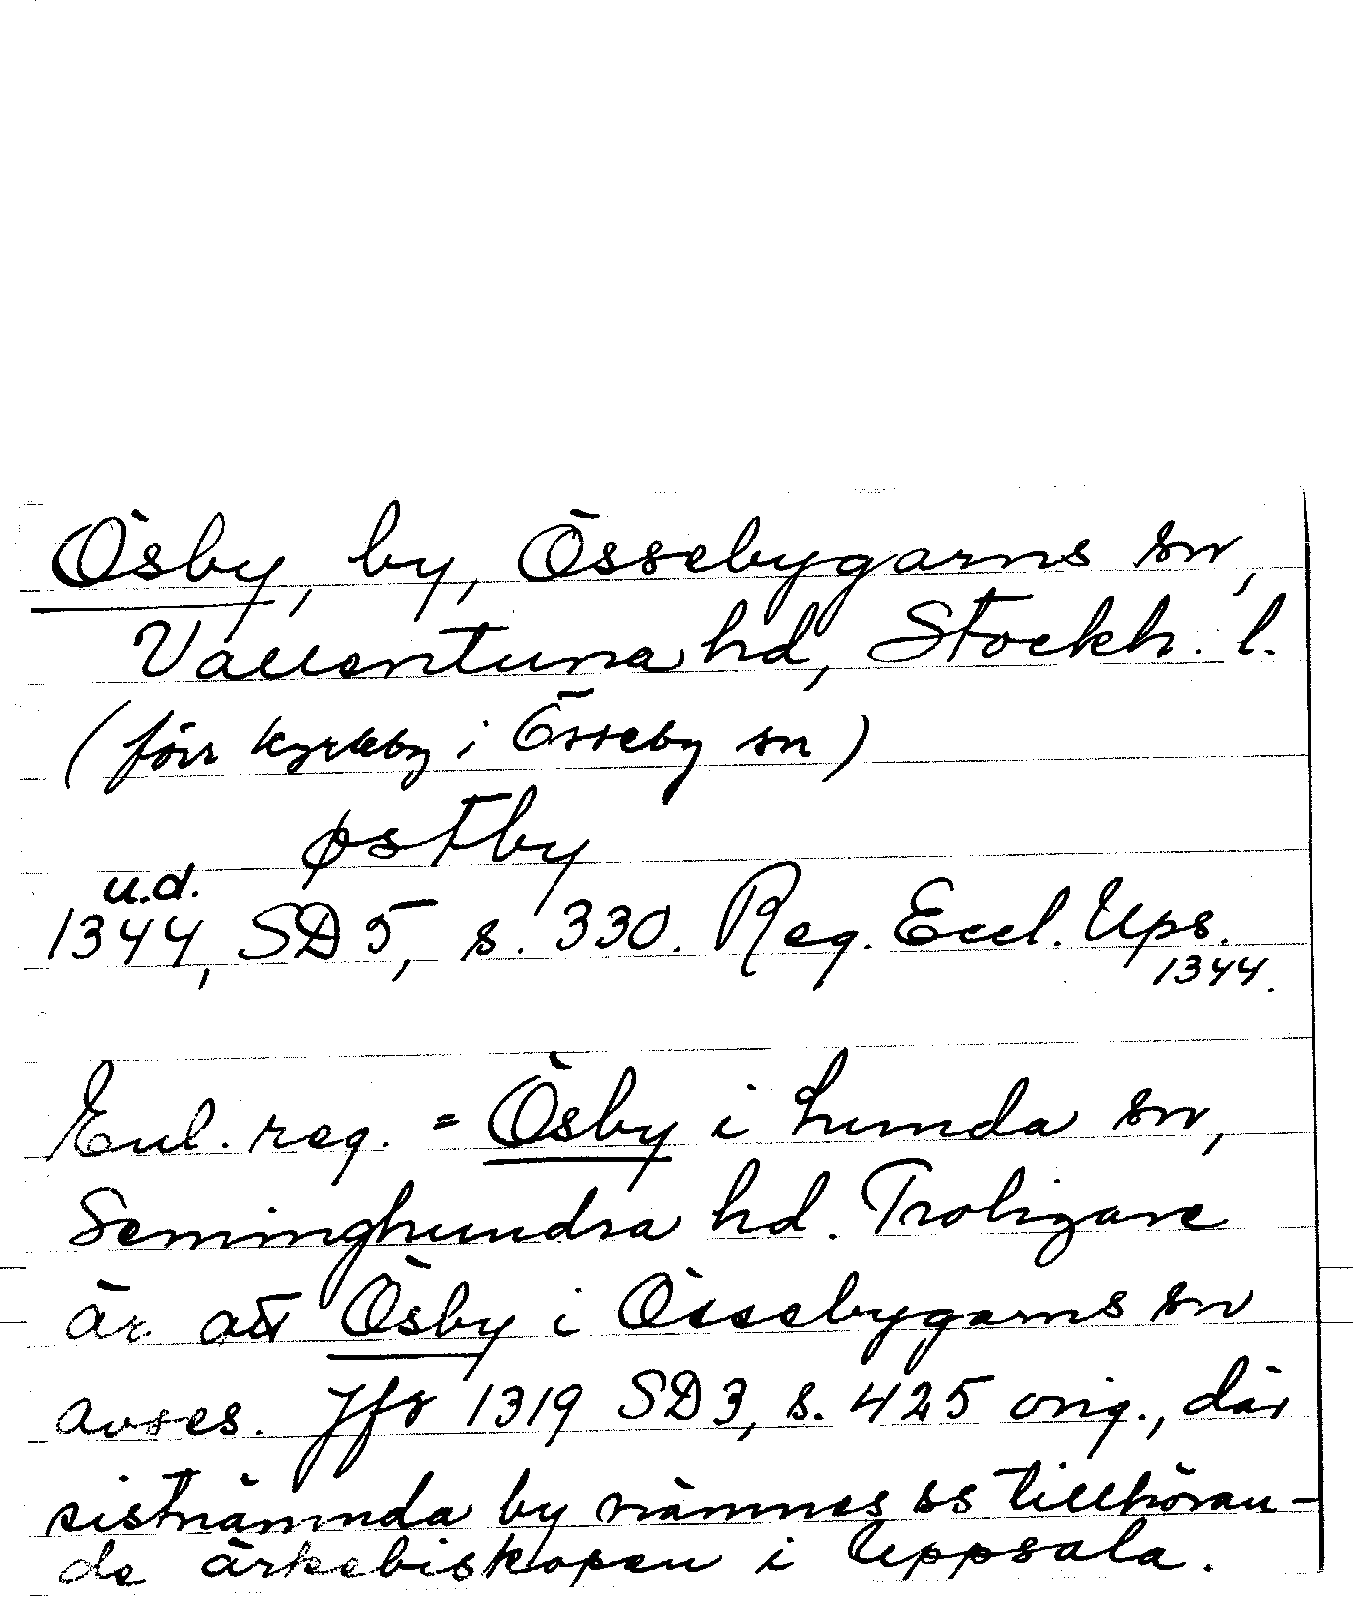 Ösby, by, Össebygarns sn,
Vallentuna hd, Stockh. l.
(förr kyrkby i Össeby sn)
østby
u.d.
1344, SD 5, s. 330. Reg. Eccl. Ups.
1344.
Enl. reg. = Ösby i Lunda sn,
Seminghundra hd. Troligare
är att Ösby i Össebygarns sn
avses. Jfr 1319 SD 3, s. 425 orig., där
sistnämnda by nämnes ss tillhöran-
de ärkebiskopen i Uppsala.